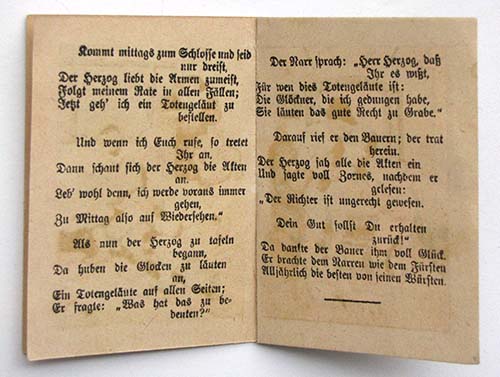 Kommt mittags zum Schlosse und seid
nur dreist,
Der Herzog liebt die Armen zumeist,
Folgt meinem Rate in allen Fällen;
Jetzt geh' ich ein Totengeläut zu
bestellen.
Und wenn ich Euch rufe, so tretet
Ihr an.
Dann schaut sich der Herzog die Akten
an.
Leb' wohl denn, ich werde voraus immer
gehen,
Zu Mittag also auf Wiedersehen.“
Als nun der Herzog zu tafeln
begann,
Da huben die Glocken zu läuten
an,
Ein Totengeläute auf allen Seiten;
Er fragte: „Was hat das zu be-
deuten?“
Der Narr sprach: „Herr Herzog, daß
Ihr es wißt,
Für wen dies Totengeläute ist:
Die Glöckner, die ich gedungen habe,
Sie läuten das gute Recht zu Grabe.“
Darauf rief er den Bauern; der trat
herein.
Der Herzog sah alle die Akten ein
Und sagte voll Zornes, nachdem er
gelesen:
„Der Richter ist ungerecht gewesen.
Dein Gut sollst Du erhalten
zurück!“
Da dankte der Bauer ihm voll Glück.
Er brachte dem Narren wie dem Fürsten
Alljährlich die besten von seinen Würsten.